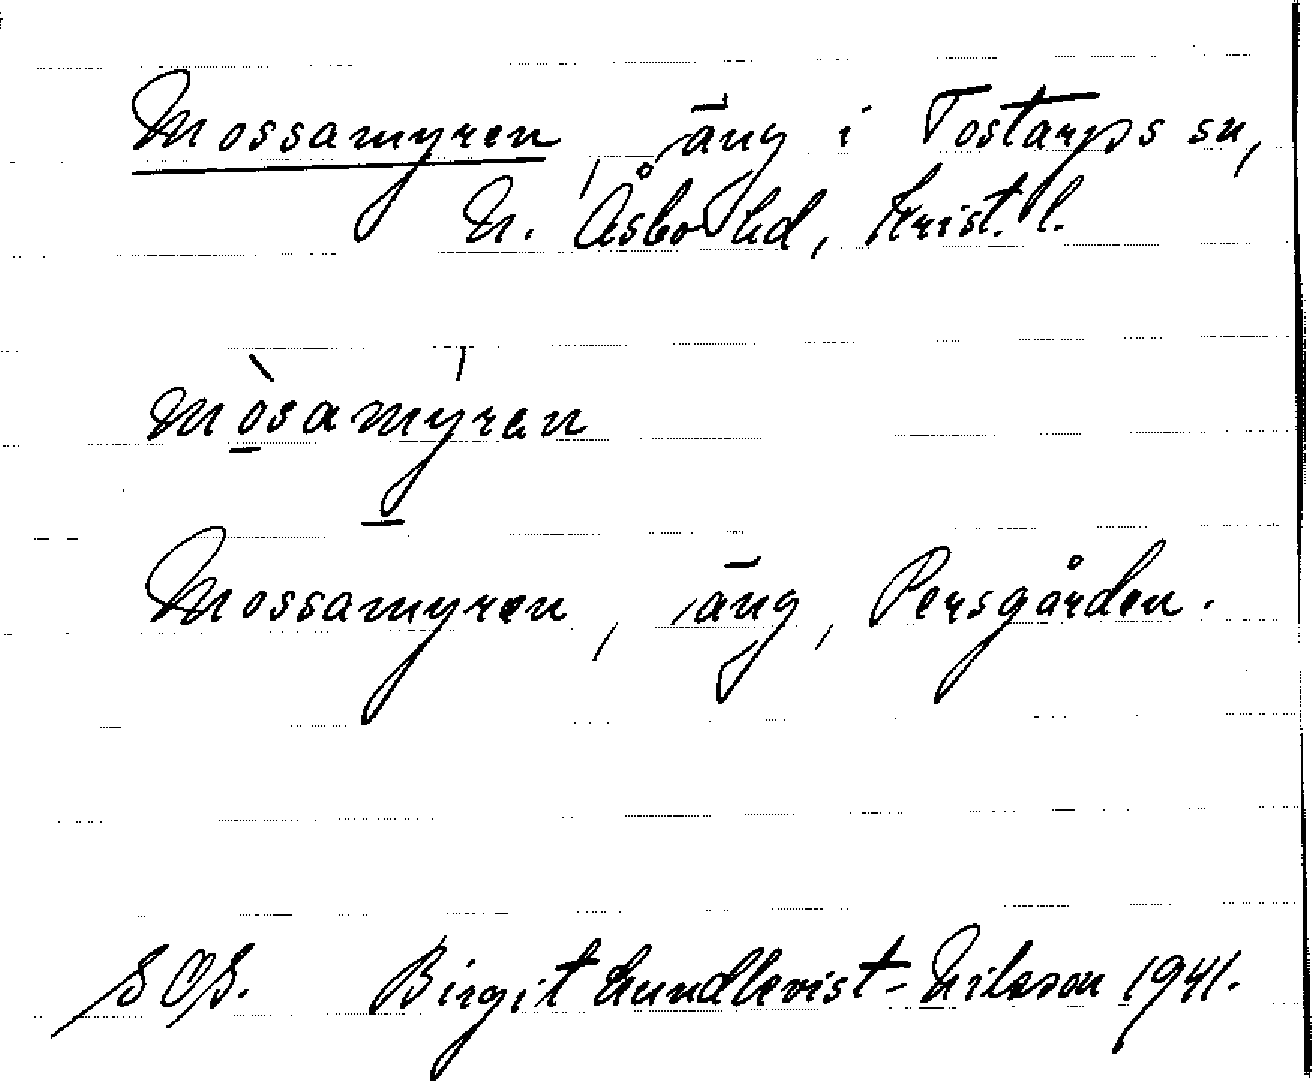 Mossamyren, äng i Tostarps sn,
N. Åsbo hd, Krist. l.
mòsamýren
Mossamyren, äng, Persgården.
SOS. Birgit Lundkvist-Nilsson 1941.